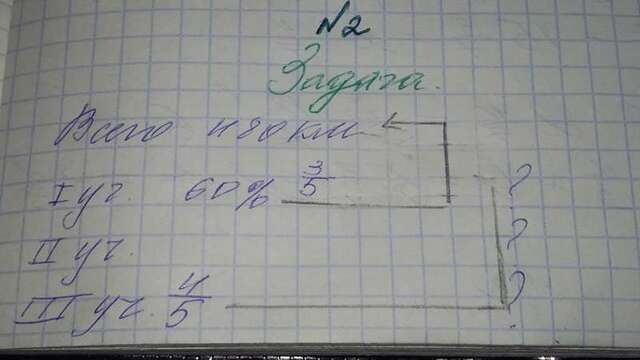 №2
Задача.
Всего 480 км
I уч. 60% 3/5 ?
II уч. ?
III уч. 4/5 ?